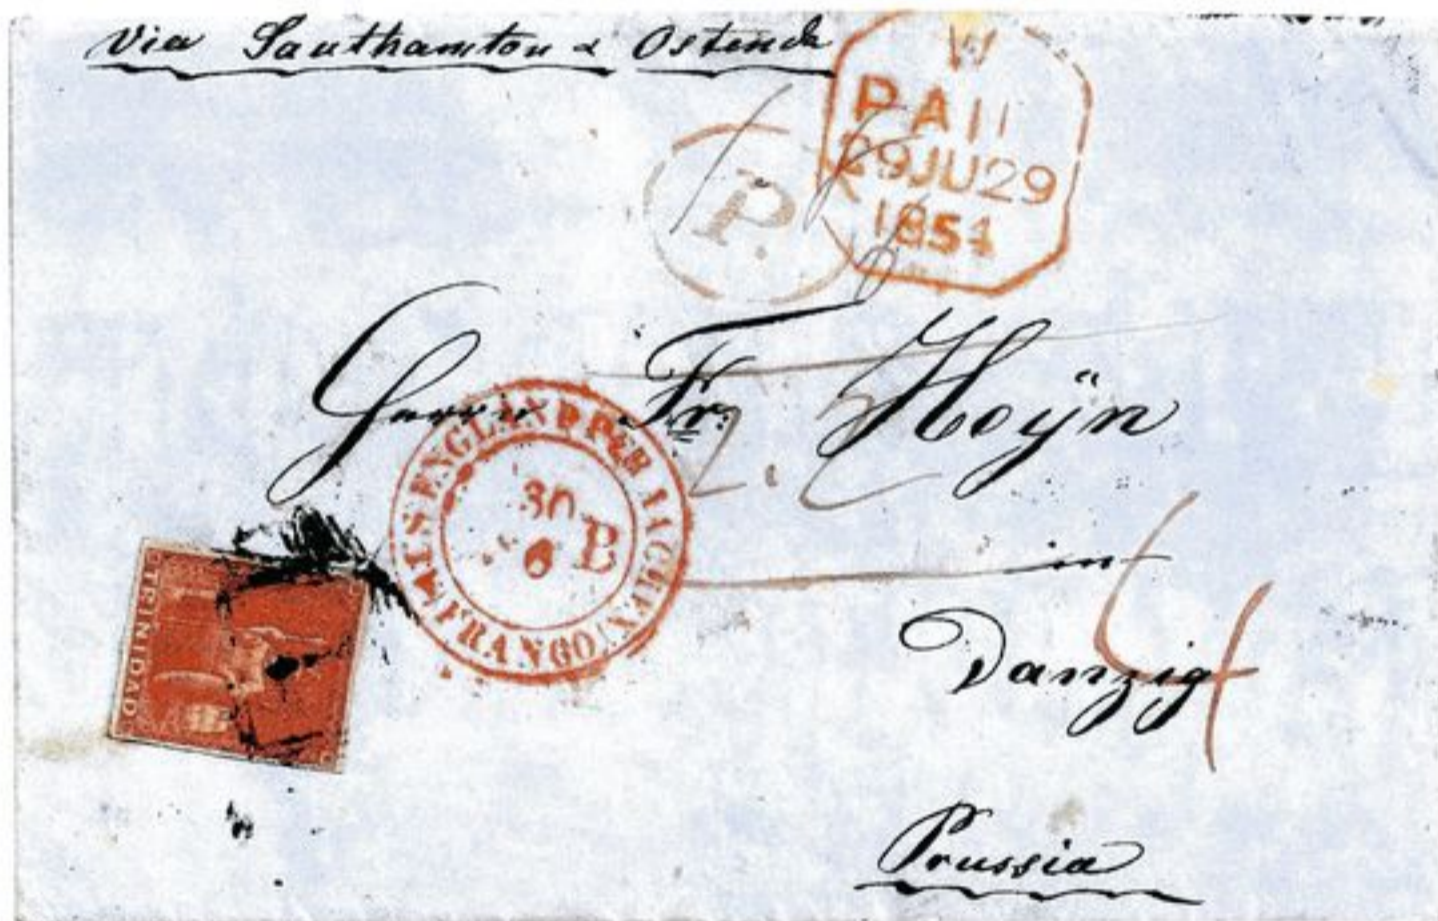 Via Southamton & Ostende
PAID
29JU29
1854
P.
Herrn Fr. Hoÿn
AUS ENGLAND PER AACHEN
FRANCO
30
6 B
in
4
TRINIDAD
Danzig
Prussia